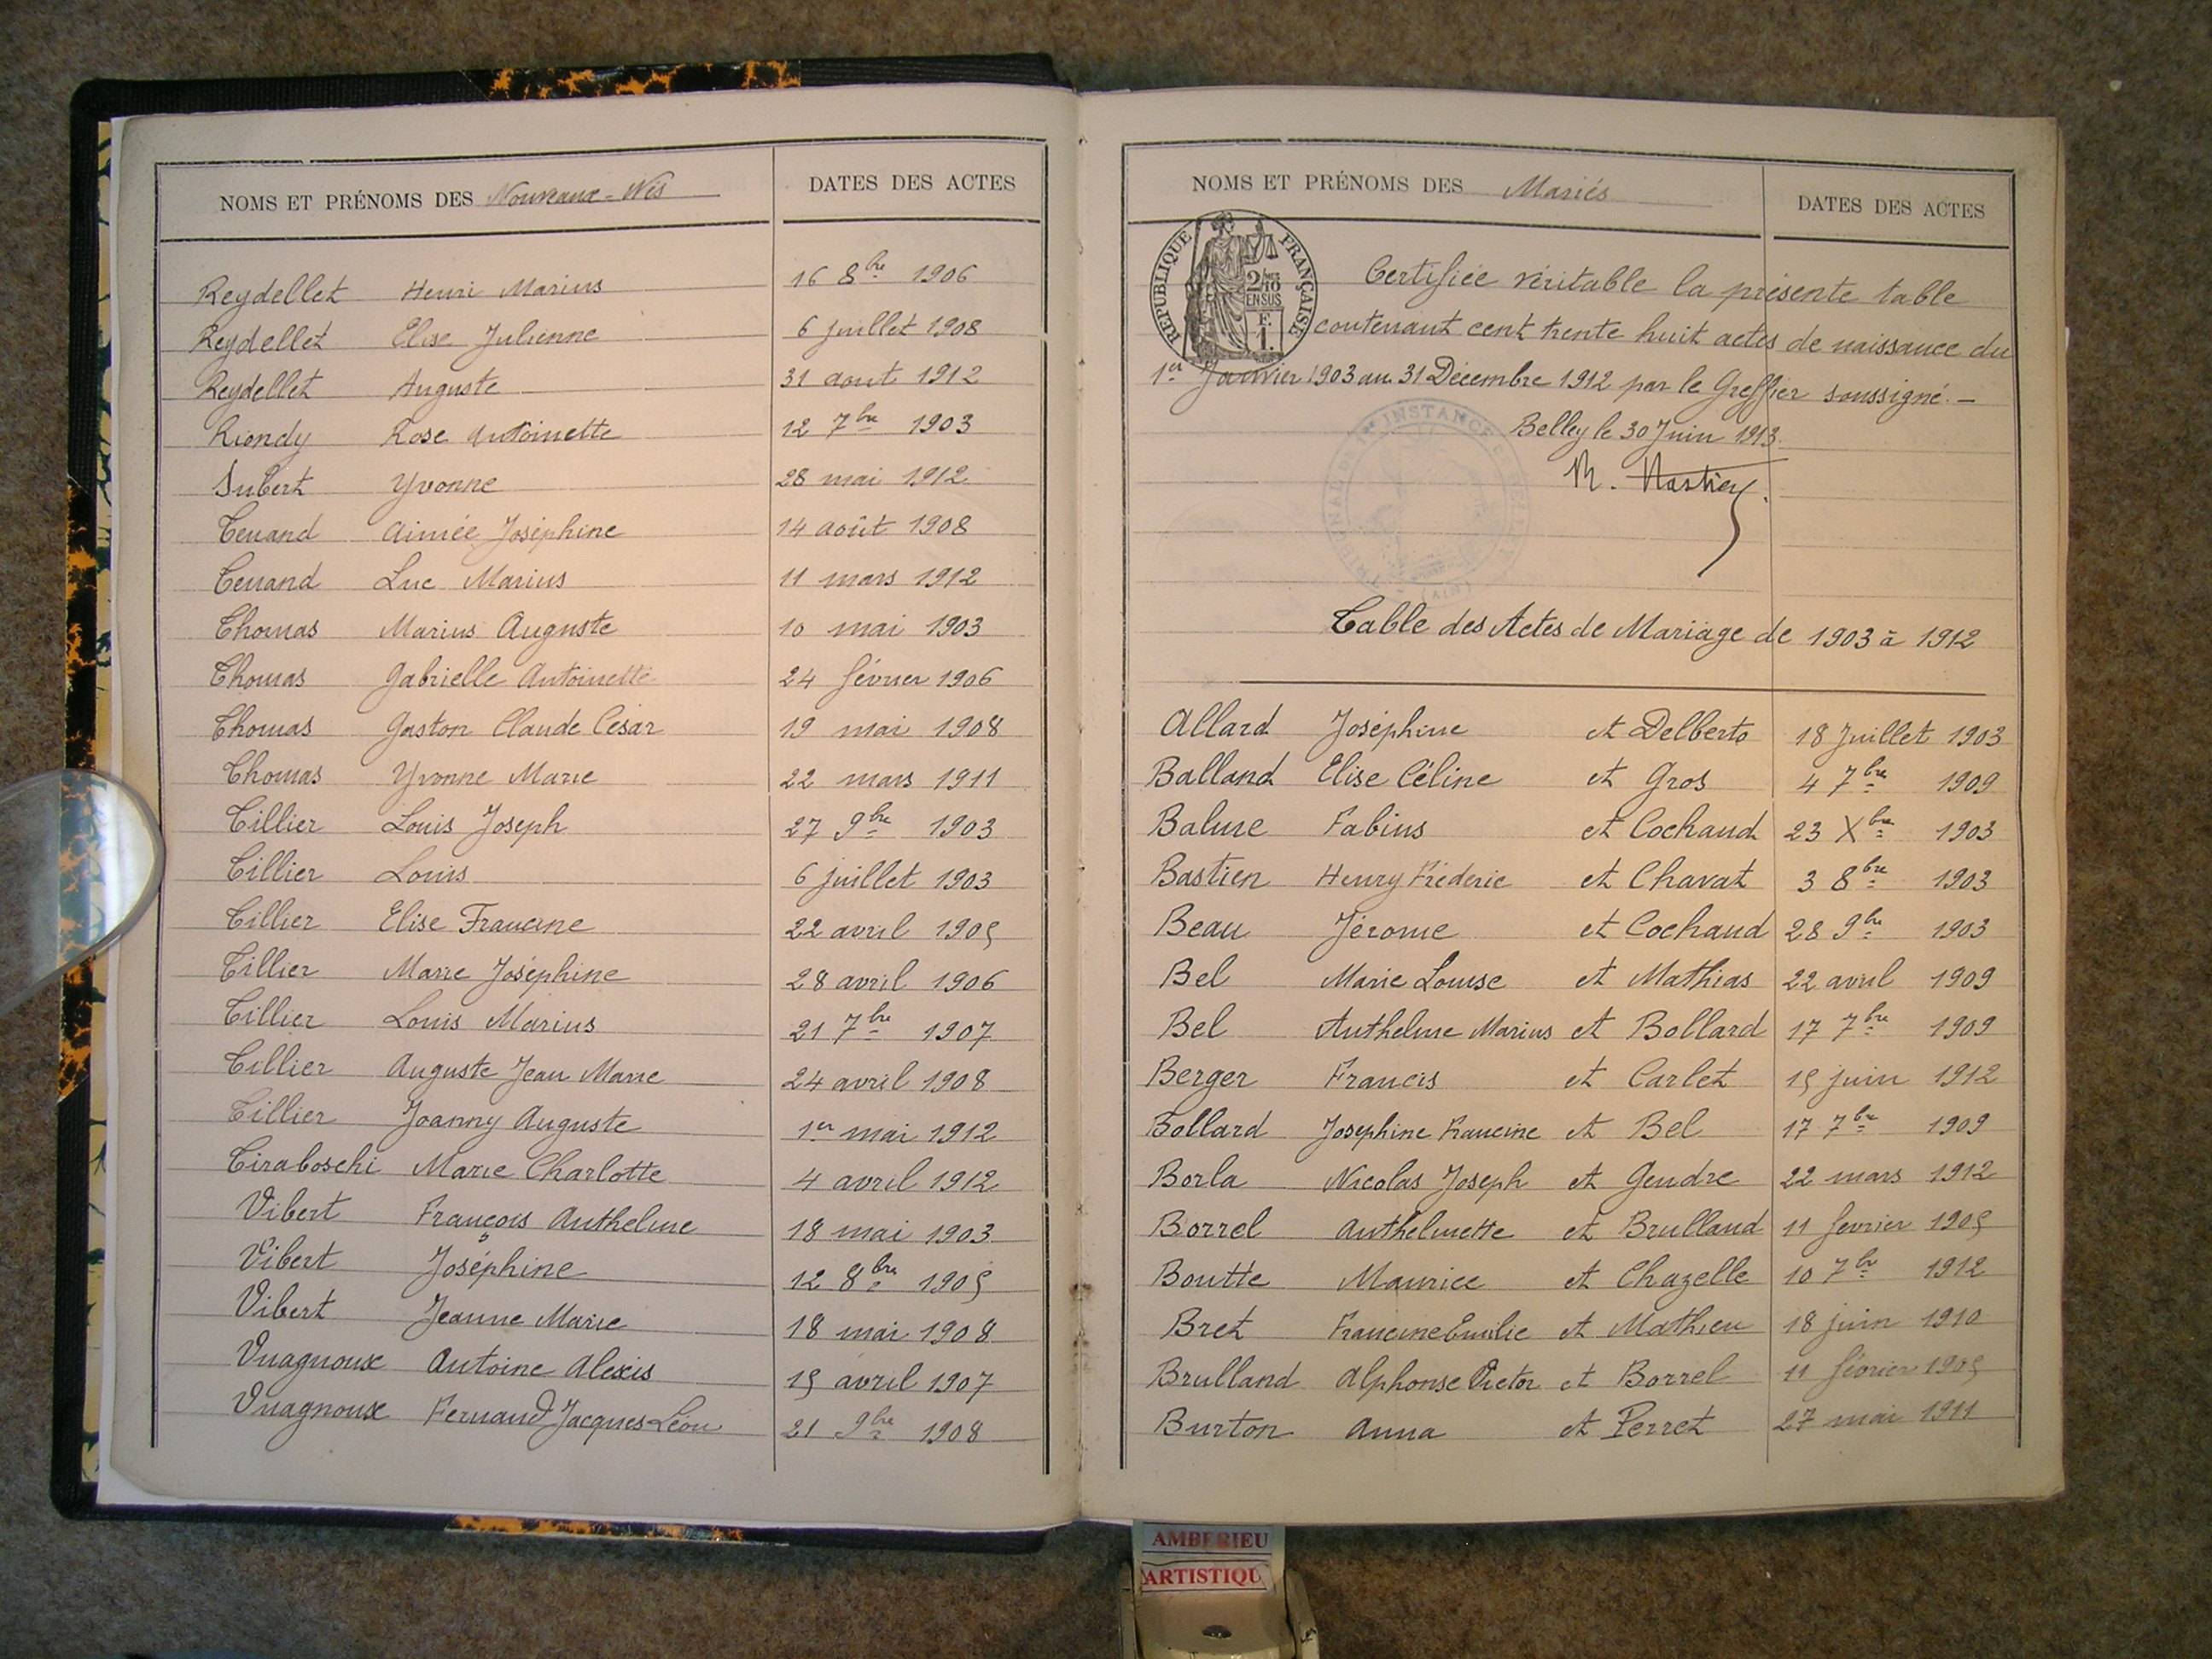 NOMS ET PRÉNOMS DES Nouveaux-Nés
DATES DES ACTES
Reydellet Henri Marius 16 8bre 1906
Reydellet Elise Julienne 6 juillet 1908
Reydellet Auguste 31 aout 1912
Riondy Rose Antoinette 12 7bre 1903
Subert Yvonne 28 mai 1912
Tenand Aimée Joséphine 14 août 1908
Tenand Luc Marius 11 mars 1912
Thomas Marius Auguste 10 mai 1903
Thomas Gabrielle Antoinette 24 février 1906
Thomas Gaston Claude César 19 mai 1908
Thomas Yvonne Marie 22 mars 1911
Tillier Louis Joseph 27 9bre 1903
Tillier Louis 6 juillet 1903
Tillier Elise Francine 22 avril 1905
Tillier Marie Joséphine 28 avril 1906
Tillier Louis Marius 21 7bre 1907
Tillier Auguste Jean Marie 24 avril 1908
Tillier Joanny Auguste 1er mai 1912
Tiraboschi Marie Charlotte 4 avril 1912
Vibert François Anthelme 18 mai 1903
Vibert Joséphine 12 8bre 1905
Vibert Jeanne Marie 18 mai 1908
Vuagnoux Antoine Alexis 15 avril 1907
Vuagnoux Fernand Jacques Léon 21 9bre 1908
NOMS ET PRÉNOMS DES Mariés
DATES DES ACTES
RÉPUBLIQUE FRANÇAISE
2/10
EN SUS
F.
1.
Certifiée véritable la présente table
contenant cent trente huit actes de naissance du
1er Janvier 1903 au 31 Décembre 1912 par le Greffier soussigné. -
Belley le 30 Juin 1913.
INSTANCE
(AIN)
Table des Actes de Mariage de 1903 à 1912
Allard Joséphine et Delberto 18 Juillet 1903
Balland Elise Céline et Gros 4 7bre 1909
Balme Fabius et Cochaud 23 Xbre 1903
Bastien Henry Fréderic et Chavat 3 8bre 1903
Beau Jérome et Cochaud 28 9bre 1903
Bel Marie Louise et Mathias 22 avril 1909
Bel Anthelme Marius et Bollard 17 7bre 1909
Berger Francis et Carlet 15 juin 1912
Bollard Josephine Francine et Bel 17 7bre 1909
Borla Nicolas Joseph et Gendre 22 mars 1912
Borrel Anthelmette et Brulland 11 fevrier 1905
Boutte Maurice et Chazelle 10 7bre 1912
Bret Francine Emilie et Mathieu 18 juin 1910
Brulland Alphonse Victor et Borrel 11 février 1905
Burton Anna et Perret 27 mai 1911
AMBERIEU
ARTISTIQU